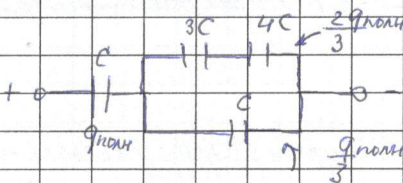 3C 4C 2qполн/3
+ C -
qполн C qполн/3